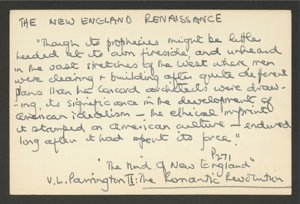 THE NEW ENGLAND RENAISSANCE
"Though its prophecies might be little
heeded at its own fireside, and unheard
in the vast stretches of the west where men
were clearing + building after quite different
plans than the Concord architects were draw-
-ing, its significance in the development of
American idealism – the ethical imprint
it stamped on American culture – endured
long after it had spent its force."
P271
"The Mind of New England"
V.L. Parrington II: The Romantic Revolution